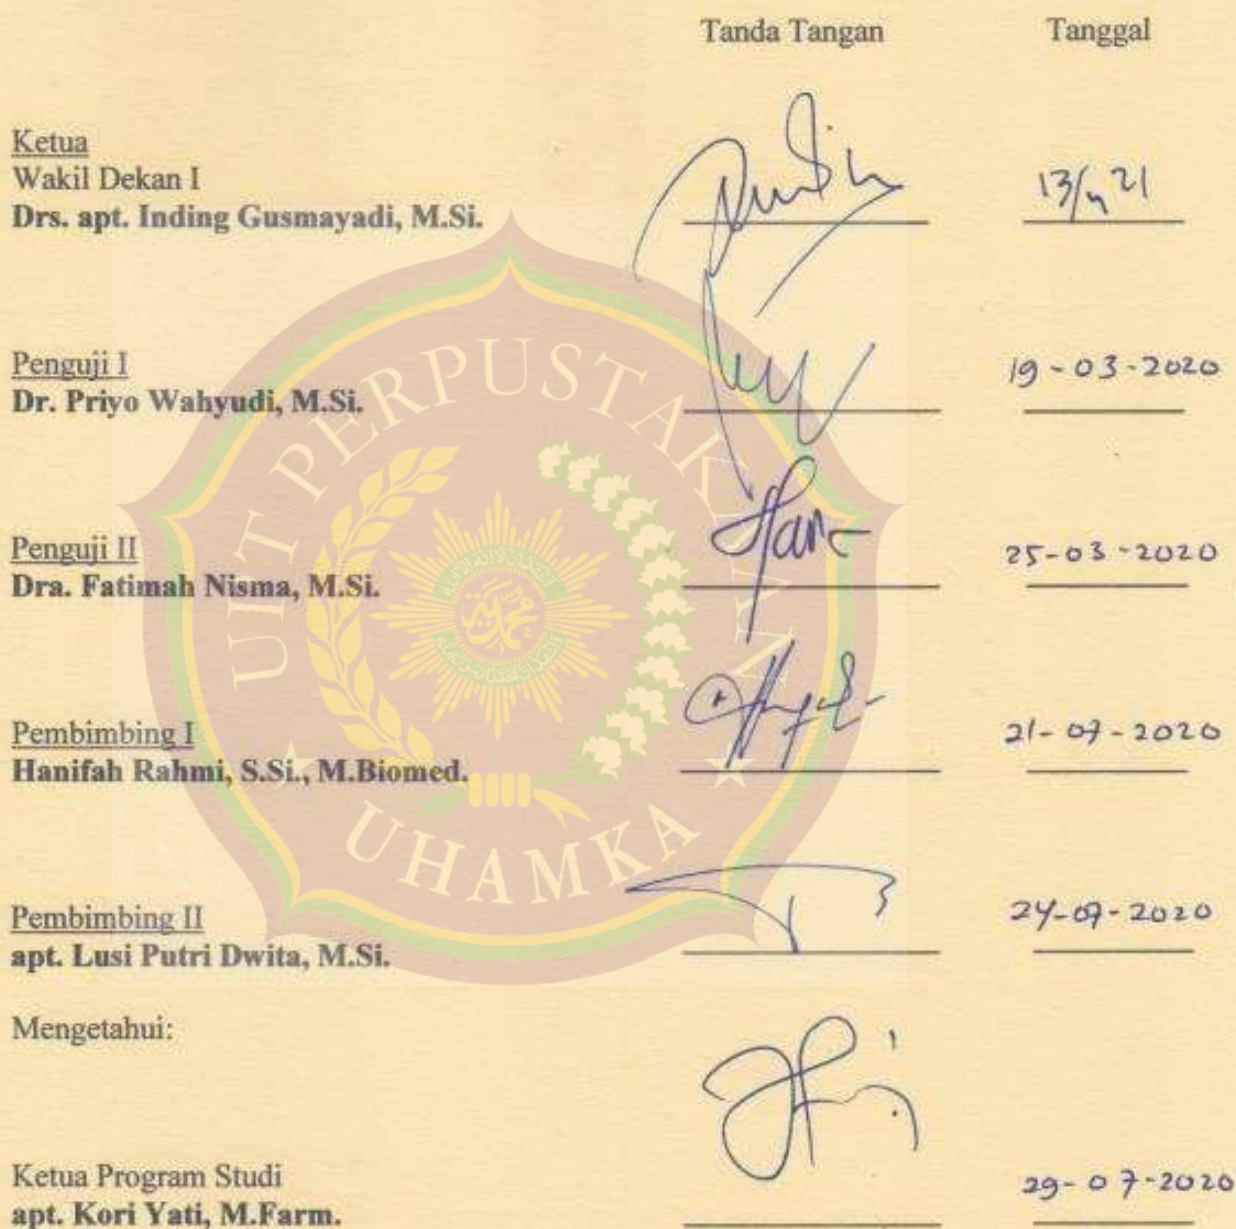 Tanda Tangan Tanggal
Ketua
Wakil Dekan I
Drs. apt. Inding Gusmayadi, M.Si.
13/4 21
Penguji I
Dr. Priyo Wahyudi, M.Si.
19-03-2020
Penguji II
Dra. Fatimah Nisma, M.Si.
25-03-2020
Pembimbing I
Hanifah Rahmi, S.Si., M.Biomed.
21-07-2020
Pembimbing II
apt. Lusi Putri Dwita, M.Si.
24-07-2020
Mengetahui:
Ketua Program Studi
apt. Kori Yati, M.Farm.
29-07-2020
UIT PERPUSTAKAAN
UHAMKA
محمدية